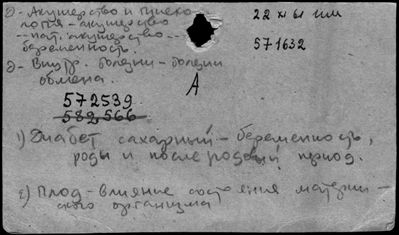 д- Акушерство и гинеко-
логия - акушерство
-- пат. акушерство --
беременность.
д- Внутр. болезни - болезни
обмена.
22 XI 61
571632
А
572539
582566
1) Диабет сахарный - беременность,
роды и послеродовый период.
2) Плод - влияние состояния материн-
ского организма